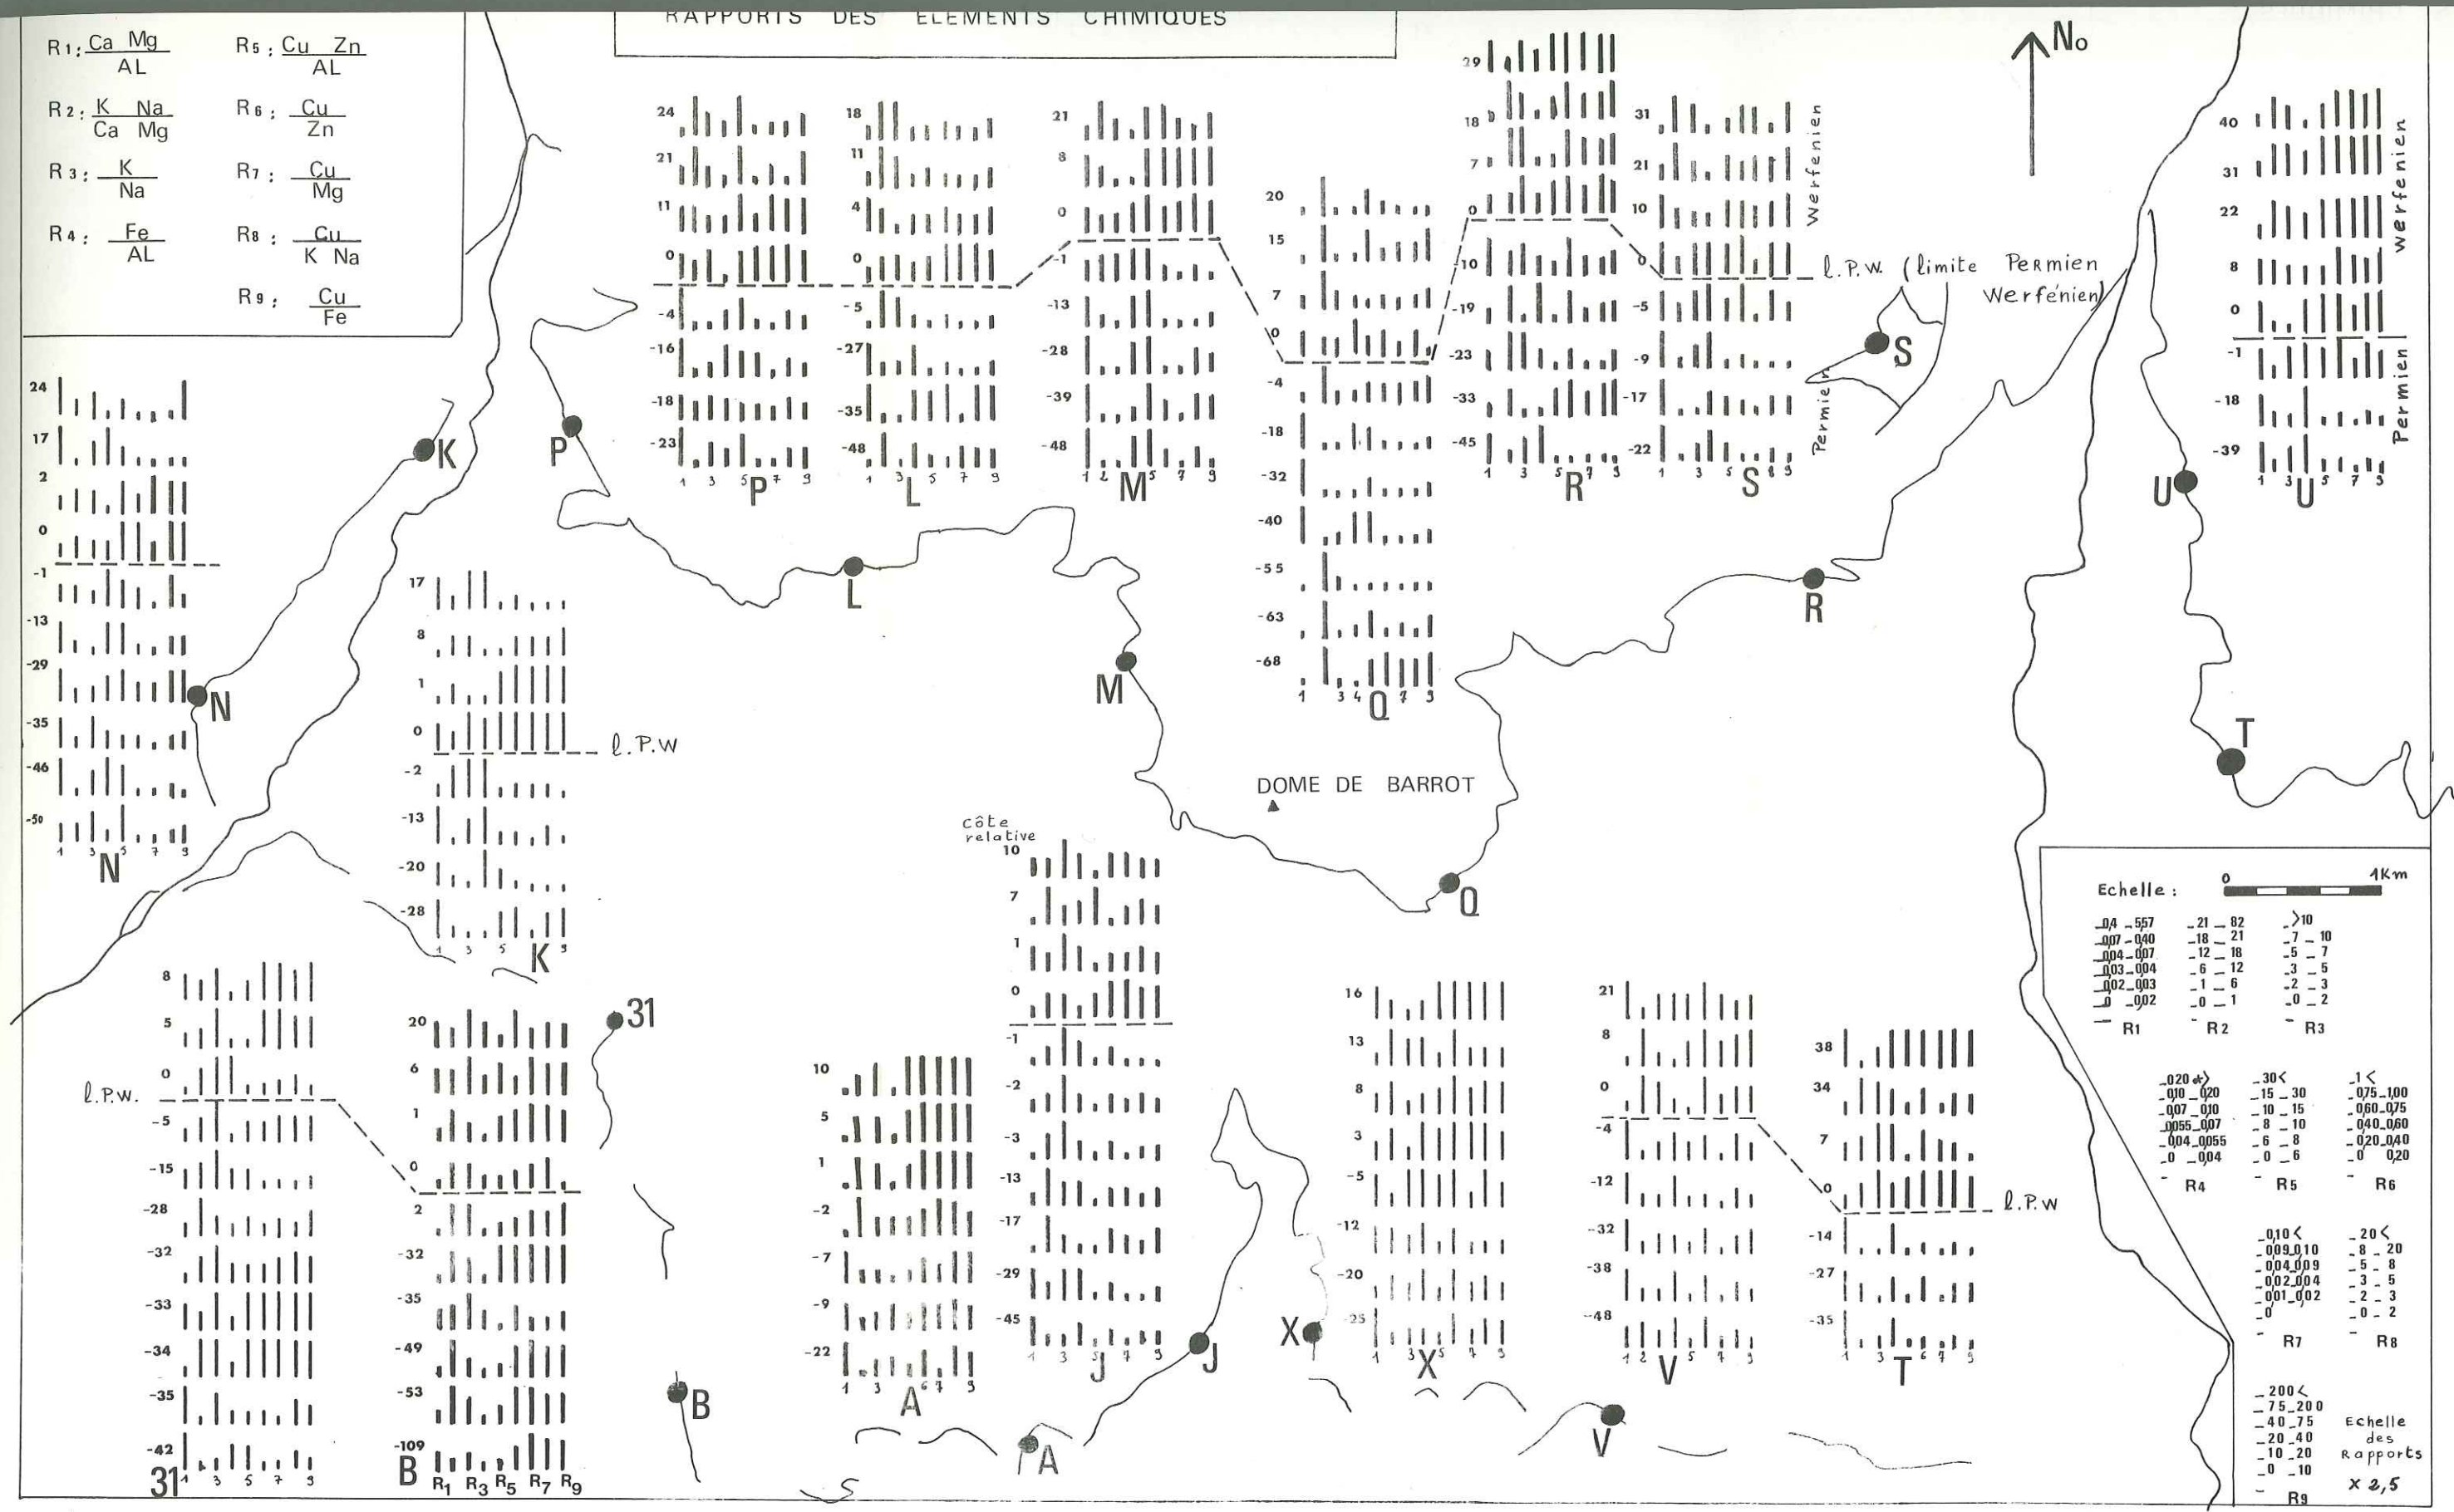 RAPPORTS DES ELEMENTS CHIMIQUES
R1: Ca Mg / AL
R5: Cu Zn / AL
R2: K Na / Ca Mg
R6: Cu / Zn
R3: K / Na
R7: Cu / Mg
R4: Fe / AL
R8: Cu / K Na
R9: Cu / Fe
No
24
21
11
0
-4
-16
-18
-23
1 3 5 7 9
P
18
11
4
0
-5
-27
-35
-48
1 3 5 7 9
L
21
8
0
-1
-13
-28
-39
-48
1 2 5 7 9
M
20
15
7
0
-4
-18
-32
-40
-55
-63
-68
1 3 4 7 9
Q
29
18
7
0
-10
-19
-23
-33
-45
1 3 5 7 9
R
31
21
10
0
-5
-9
-17
-22
1 3 5 8 9
S
Werfenien
Permien
l.P.W. (limite Permien
Werfénien)
40
31
22
8
0
-1
-18
-39
1 3 5 7 9
U
Werfenien
Permien
24
17
2
0
-1
-13
-29
-35
-46
-50
1 3 5 7 9
N
17
8
1
0
-2
-13
-20
-28
1 3 5 9
K
l.P.W
K
P
N
L
M
Q
R
S
U
T
DOME DE BARROT
8
5
0
-5
-15
-28
-32
-33
-34
-35
-42
1 3 5 7 9
31
l.P.W.
20
6
1
0
2
-32
-35
-49
-53
-109
B
R1 R3 R5 R7 R9
31
B
10
5
1
-2
-7
-9
-22
1 3 6 7 9
A
Côte
relative
10
7
1
0
-1
-2
-3
-13
-17
-29
-45
1 3 5 7 9
J
16
13
8
3
-5
-12
-20
-25
1 3 5 7 9
X
21
8
0
-4
-12
-32
-38
-48
1 2 5 7 9
V
38
34
7
0
-14
-27
-35
1 3 6 7 9
T
l.P.W
A
J
X
V
Echelle :
0 1Km
_0,4 _ 5,57
_0,07 _ 0,40
_0,04 _ 0,07
_0,03 _ 0,04
_0,02 _ 0,03
_0 _ 0,02
R1
_ 21 _ 82
_ 18 _ 21
_ 12 _ 18
_ 6 _ 12
_ 1 _ 6
_ 0 _ 1
R2
_ >10
_ 7 _ 10
_ 5 _ 7
_ 3 _ 5
_ 2 _ 3
_ 0 _ 2
R3
_0,20 et >
_0,10 _ 0,20
_0,07 _ 0,10
_0,055 _ 0,07
_0,04 _ 0,055
_0 _ 0,04
R4
_ 30<
_ 15 _ 30
_ 10 _ 15
_ 8 _ 10
_ 6 _ 8
_ 0 _ 6
R5
_ 1<
_ 0,75 _ 1,00
_ 0,60 _ 0,75
_ 0,40 _ 0,60
_ 0,20 _ 0,40
_ 0 0,20
R6
_ 0,10<
_ 0,09 0,10
_ 0,04 0,09
_ 0,02 0,04
_ 0,01 _ 0,02
_ 0
R7
_ 20<
_ 8 _ 20
_ 5 _ 8
_ 3 _ 5
_ 2 _ 3
_ 0 _ 2
R8
_ 200<
_ 75 _ 200
_ 40 _ 75
_ 20 _ 40
_ 10 _ 20
_ 0 _ 10
R9
Echelle
des
Rapports
x 2,5